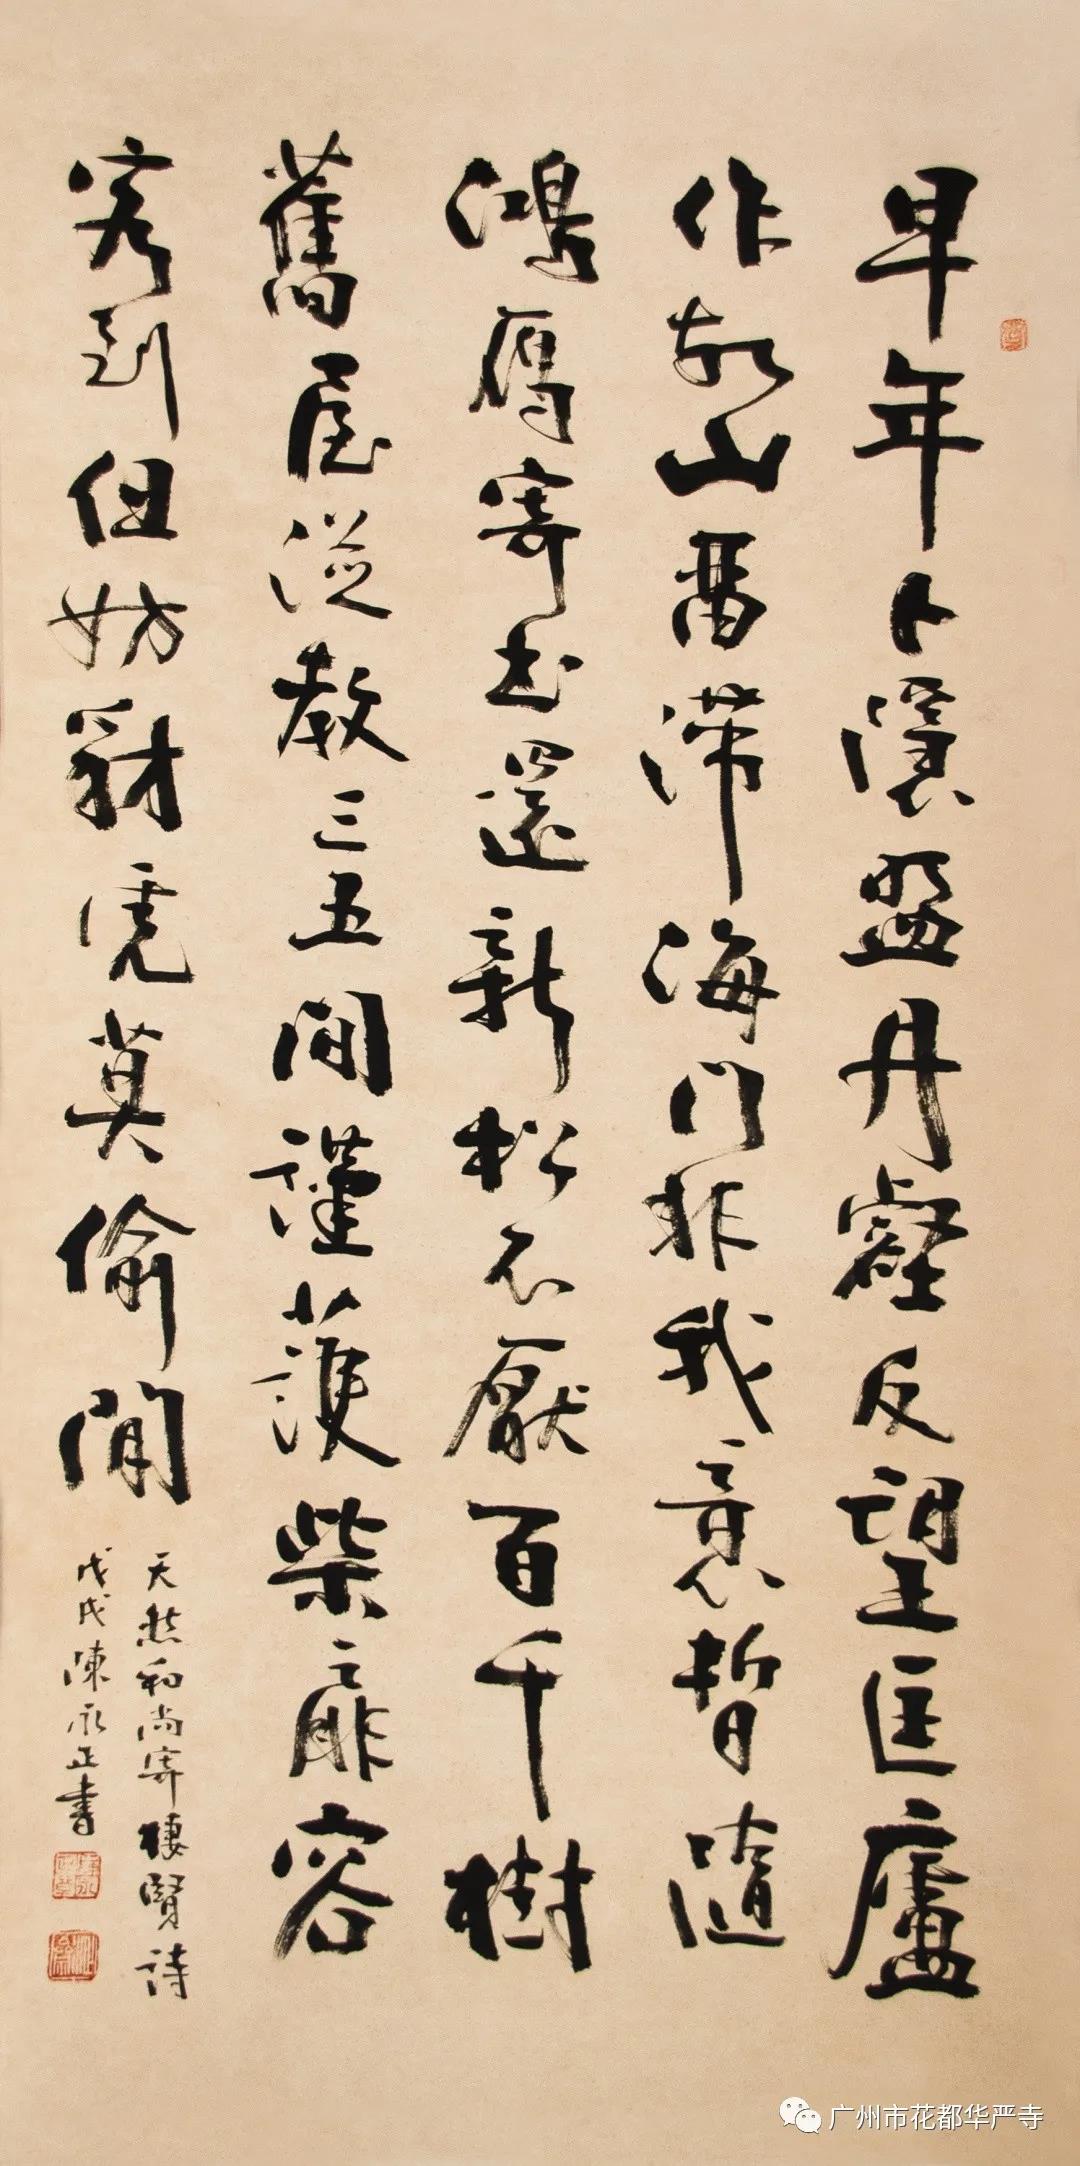 早年卜隱盟丹壑反望匡廬
作故山留滯海門非我意暫隨
鴻雁寄書還新松不厭百千樹
舊屋從教三五間謹護柴扉容
客到但妨豺虎莫偷閒
天然和尚寄棲賢詩
戊戌陳永正書
广州市花都华严寺